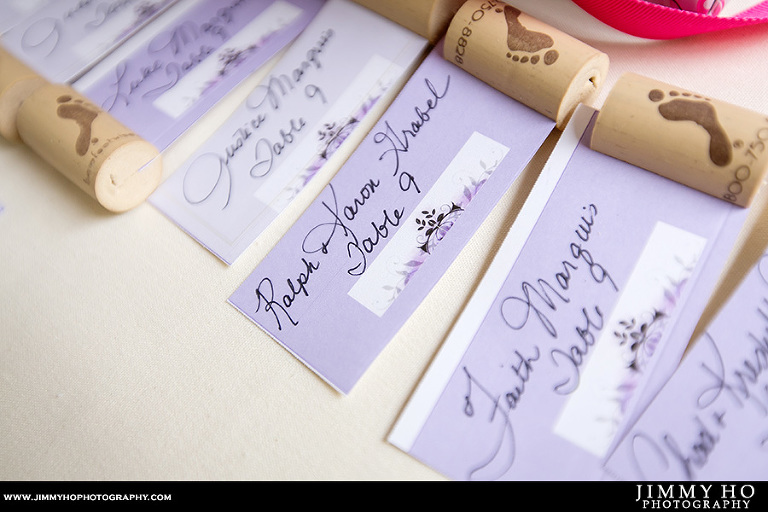 Luke Marquis
Table 9
Justice Marquis
Table 9
Ralph & Karon Hrabel
Table 9
Faith Marquis
Table 9
Chad &
750-8828
800-750
WWW.JIMMYHOPHOTOGRAPHY.COM
JIMMY HO
PHOTOGRAPHY